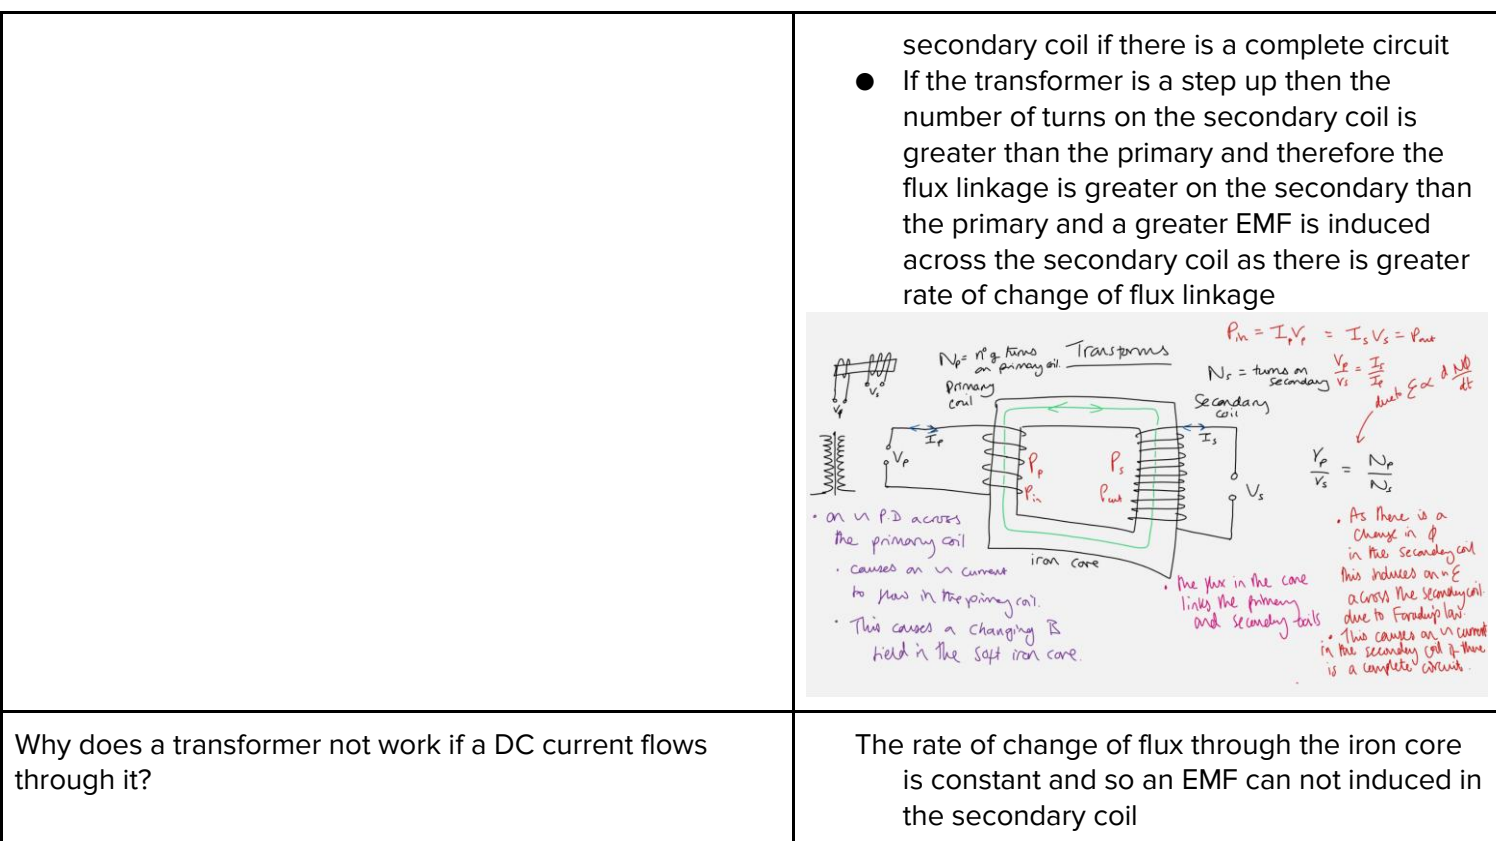 secondary coil if there is a complete circuit
● If the transformer is a step up then the
number of turns on the secondary coil is
greater than the primary and therefore the
flux linkage is greater on the secondary than
the primary and a greater EMF is induced
across the secondary coil as there is greater
rate of change of flux linkage
Transforms
Pin = IpVp = IsVs = Pout
Np = nº of turns
on primary coil.
Primary
coil
Ns = turns on
secondary
Vp/Vs = Is/Ip
due to ε ∝ d NΦ/dt
Secondary
coil
Vp
Vs
Ip
Is
Vp
Pp
Pin
Ps
Pout
Vs
Vp/Vs = Np/Ns
iron core
• an ∿ P.D across
the primary coil
• causes an ∿ current
to flow in the primary coil.
• This causes a changing B
field in the soft iron core.
• The flux in the core
links the primary
and secondary coils
• As there is a
change in ϕ
in the secondary coil
this induces an ∿ ε
across the secondary coil.
due to Faraday's law.
• This causes an ∿ current
in the secondary coil if there
is a complete circuit.
Why does a transformer not work if a DC current flows
through it?
The rate of change of flux through the iron core
is constant and so an EMF can not induced in
the secondary coil